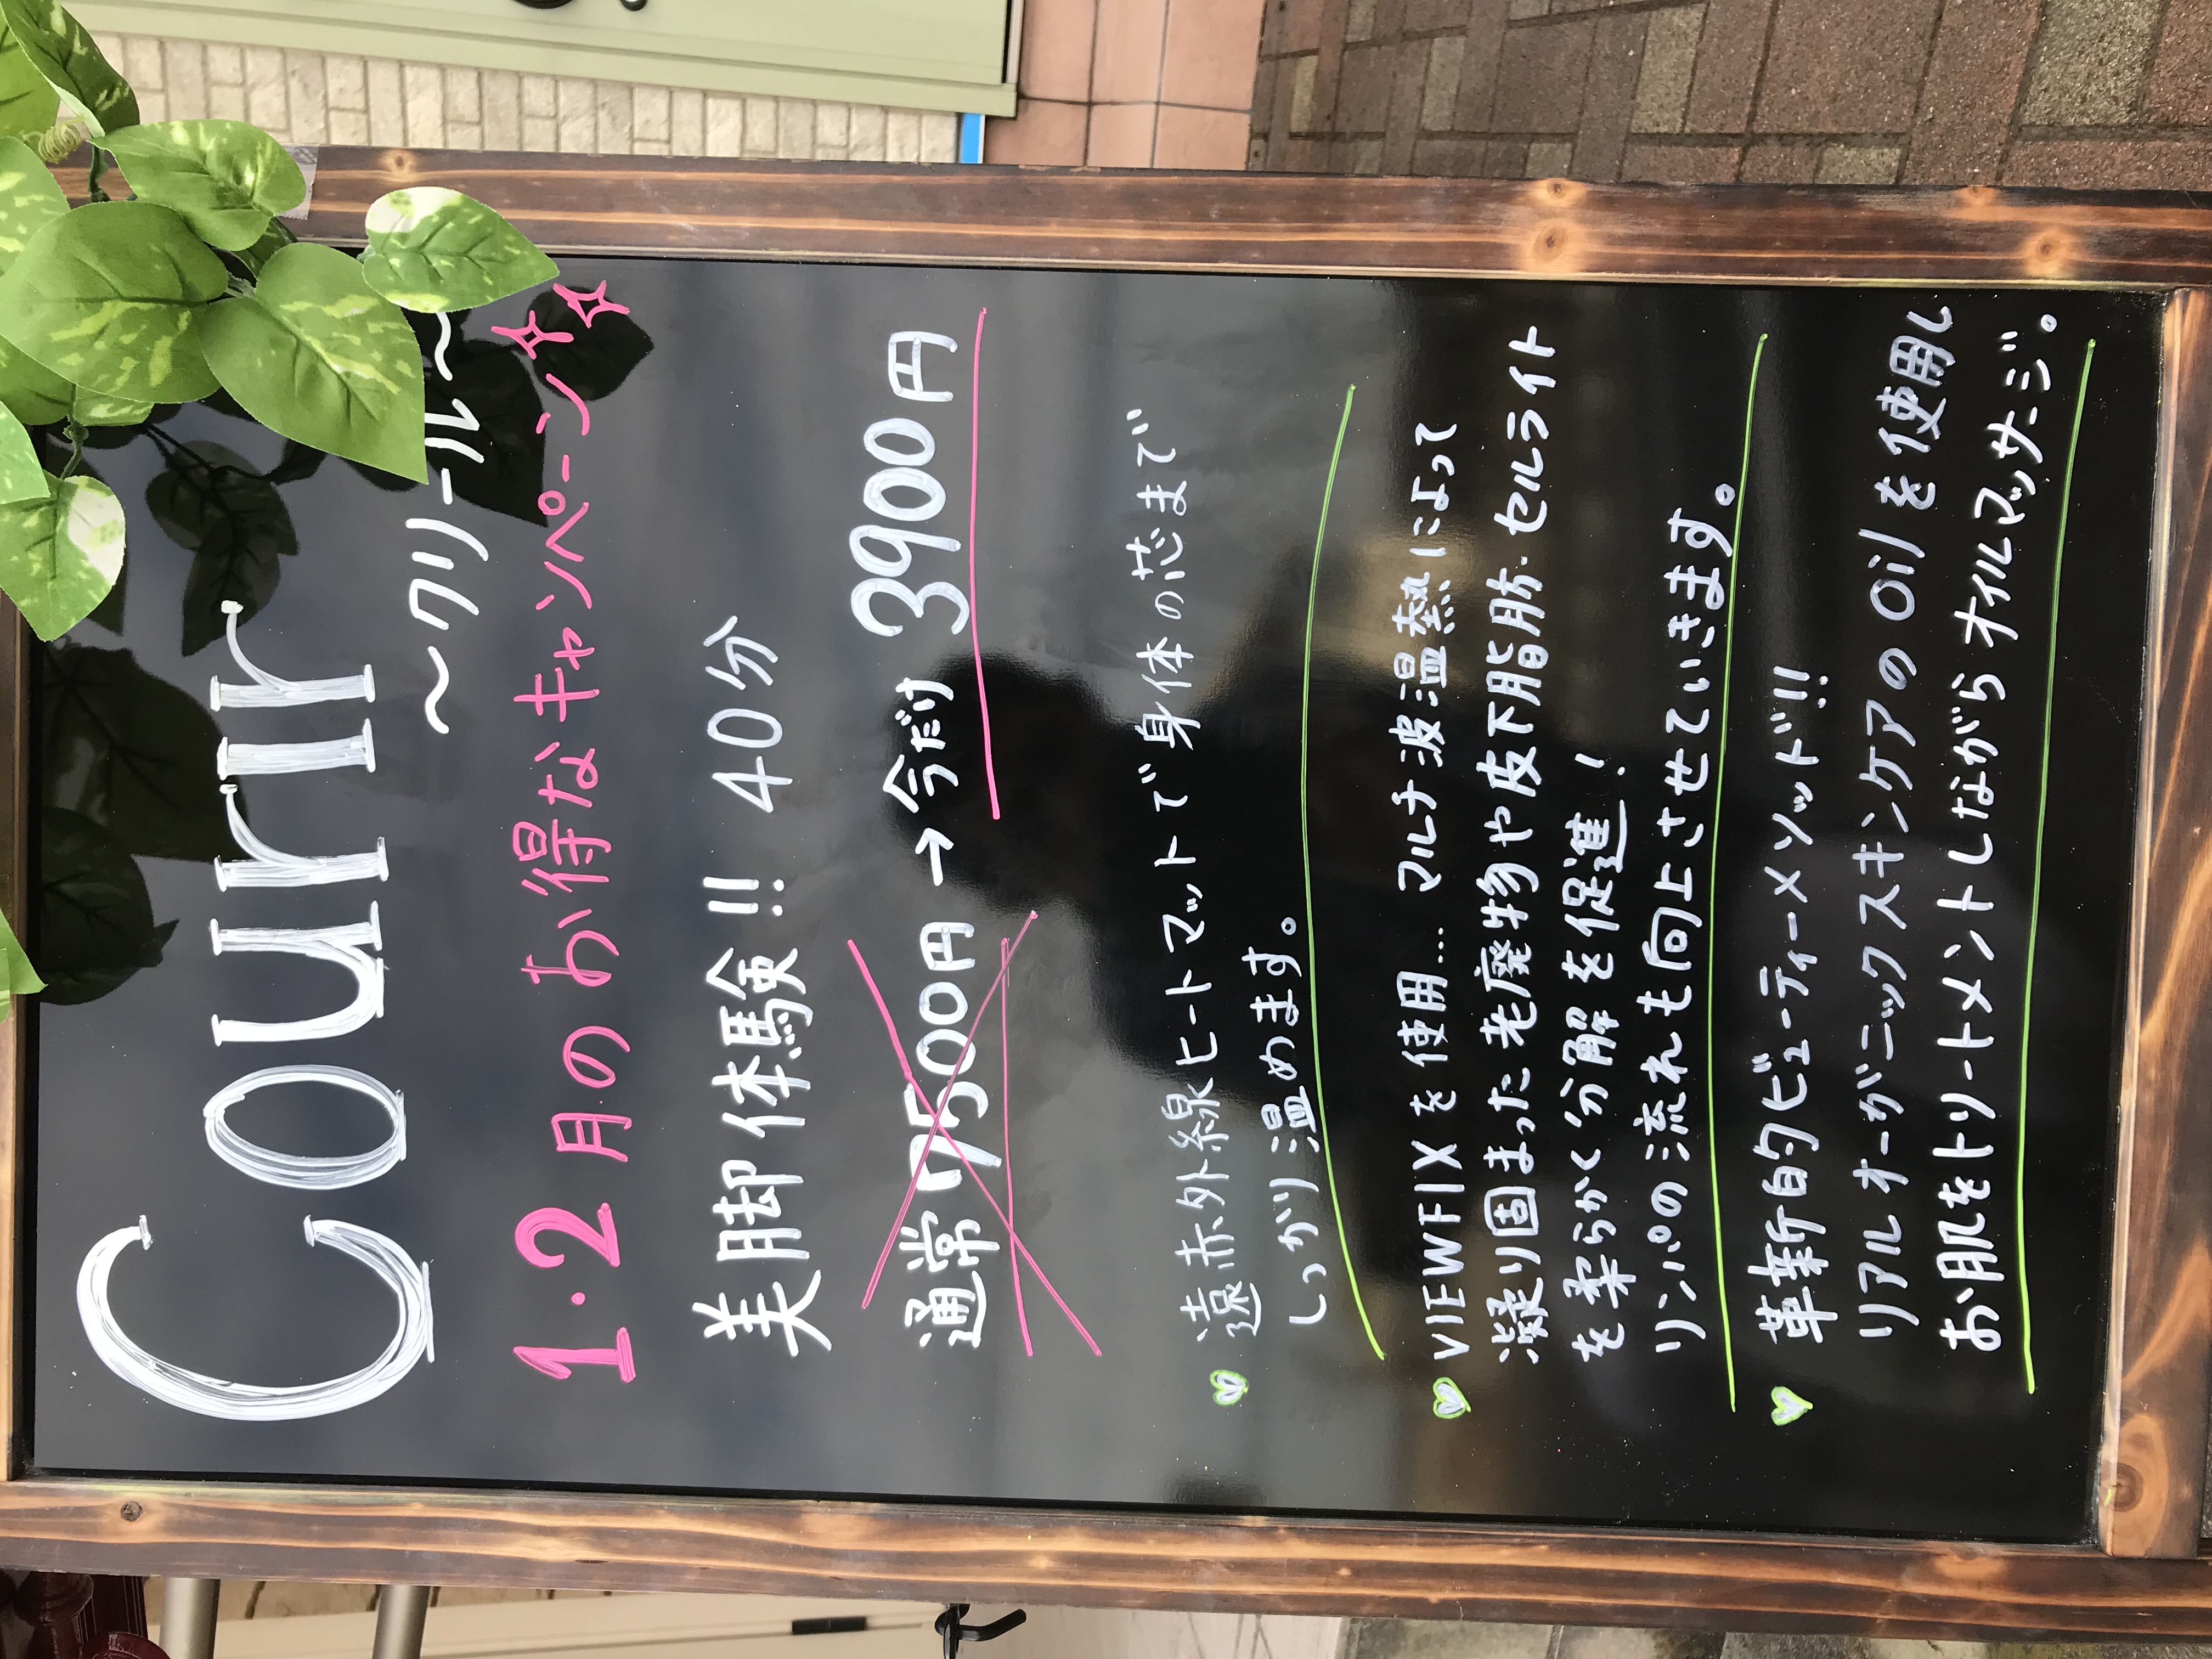 Courir
〜クリール〜
1.2月のお得なキャンペーン
美脚体験!! 40分
通常 7500円 → 今だけ 3900円
遠赤外線ヒートマットで身体の芯まで
しっかり温めます。
VIEWFIXを使用… マルチ波温熱によって
凝り固まった老廃物や皮下脂肪・セルライト
を柔らかく分解を促進!
リンパの流れも向上させていきます。
革新的ビューティーメソッド!!
リアルオーガニックスキンケアのOilを使用し
お肌をトリートメントしながらオイルマッサージ。